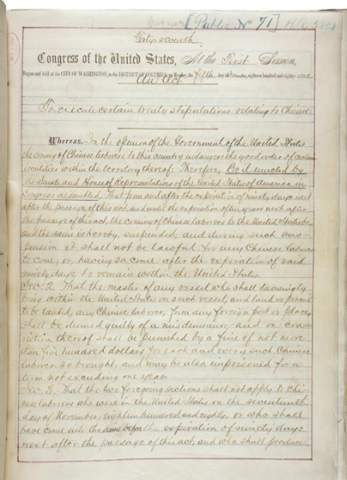 [Public No 71]
Forty-seventh
Congress of the United States, At the First Session,
Begun and held at the CITY OF WASHINGTON, in the DISTRICT OF COLUMBIA, on Monday, the fifth day of December, eighteen hundred and eighty-one
An Act
To execute certain treaty stipulations relating to Chinese
Whereas, In the opinion of the Government of the United States
the coming of Chinese laborers to this country endangers the good order of certain
localities within the territory thereof: Therefore, Be it enacted by
the Senate and House of Representatives of the United States of America in
Congress assembled, That from and after the expiration of ninety days next
after the passage of this act, and until the expiration of ten years next after
the passage of this act, the coming of Chinese laborers to the United States be,
and the same is hereby, suspended; and during such sus-
pension it shall not be lawful for any Chinese laborer
to come, or, having so come after the expiration of said
ninety days, to remain within the United States.
Sec. 2. That the master of any vessel who shall knowingly
bring within the United States on such vessel, and land or permit
to be landed, any Chinese laborer, from any foreign port or place,
shall be deemed guilty of a misdemeanor, and on con-
viction thereof shall be punished by a fine of not more
than five hundred dollars for each and every such Chinese
laborer so brought, and may be also imprisoned for a
term not exceeding one year.
Sec. 3. That the two foregoing sections shall not apply to Chi-
nese laborers who were in the United States on the seventeenth
day of November, eighteen hundred and eighty, or who shall
have come into the same before the expiration of ninety days
next after the passage of this act, and who shall produce